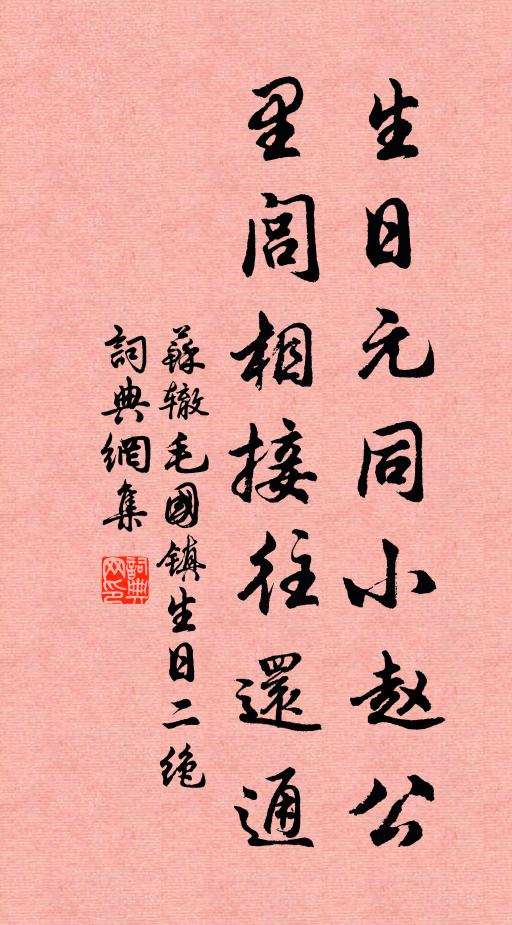 生日元同小赵公
里闾相接往還通
蘇辙毛國镇生日二绝
詞典網集
詞典网印